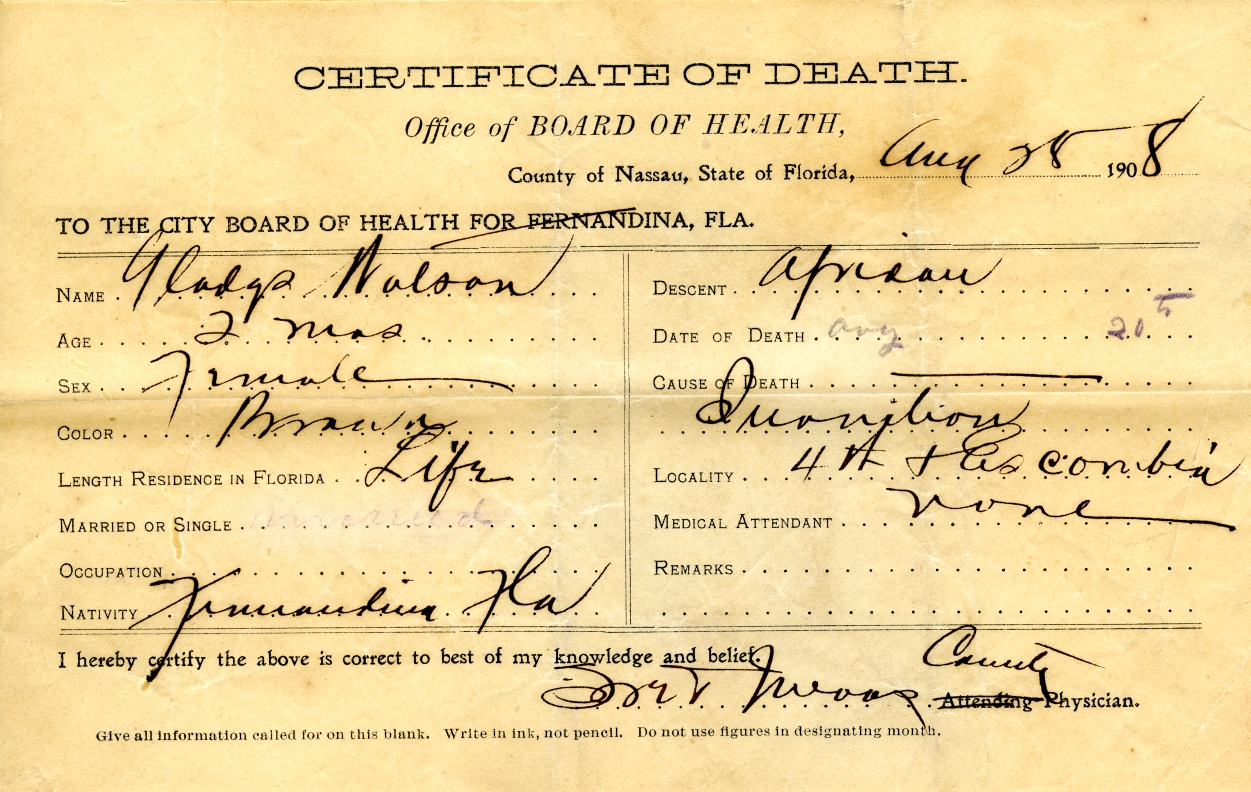 CERTIFICATE OF DEATH.
Office of BOARD OF HEALTH,
County of Nassau, State of Florida, Aug 28 1908
TO THE CITY BOARD OF HEALTH FOR FERNANDINA, FLA.
NAME Gladys Watson
AGE 2 mos
SEX Female
COLOR Brown
LENGTH RESIDENCE IN FLORIDA Life
MARRIED OR SINGLE
OCCUPATION
NATIVITY Fernandina Fla
DESCENT African
DATE OF DEATH Aug 20th
CAUSE OF DEATH
Inanition
LOCALITY 4th & Escambia
MEDICAL ATTENDANT none
REMARKS
I hereby certify the above is correct to best of my knowledge and belief.
County
Attending Physician.
Give all information called for on this blank. Write in ink, not pencil. Do not use figures in designating month.